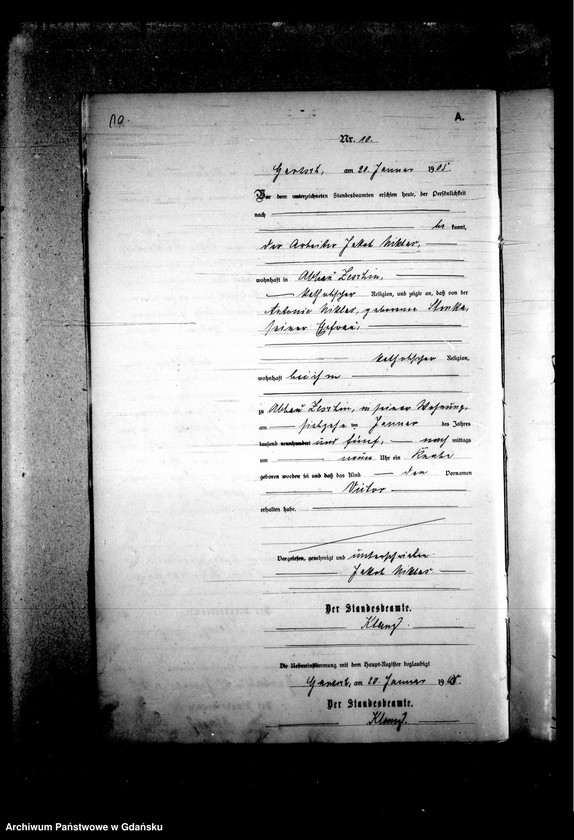 10.
A.
Nr. 10.
Gartsch, am 20. Januar 1905.
Vor dem unterzeichneten Standesbeamten erschien heute, der Persönlichkeit
nach
be kannt,
der Arbeiter Jakob Niklas,
wohnhaft in Abbau Zeschin,
katholischer Religion, und zeigte an, daß von der
Antonie Niklas, geborenen
seiner Ehefrau,
katholischer Religion,
wohnhaft bei ihm
zu Abbau Zeschin, in seiner Wohnung,
am ten Januar des Jahres
tausend neunhundert und fünf, nach mittags
um neun Uhr ein Knabe
geboren worden sei und daß das Kind den Vornamen
Victor
erhalten habe.
Vorgelesen, genehmigt und unterschrieben
Jakob Niklas
Der Standesbeamte.
Die Uebereinstimmung mit dem Haupt-Register beglaubigt
Gartsch, am 20. Januar 1905.
Der Standesbeamte.
Archiwum Państwowe w Gdańsku